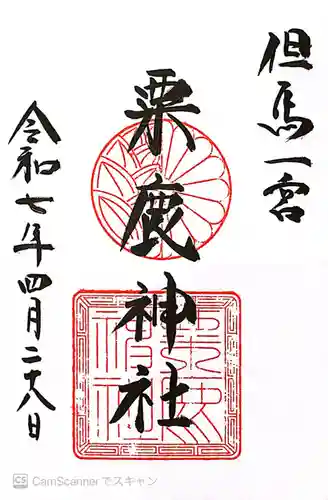 但馬一宮
粟鹿神社
令和七年四月二十八日
粟鹿神社
CS CamScanner でスキャン